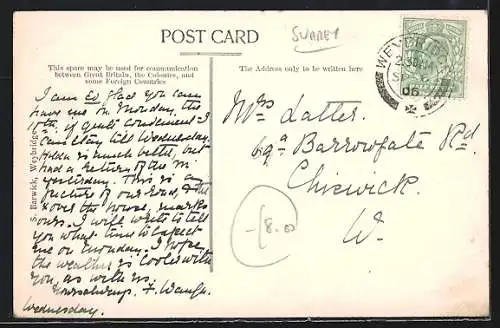 POST CARD
SURREY
This space may be used for communication
between Great Britain, the Colonies, and
some Foreign Countries
The Address only to be written here
WEYBRIDGE
SP
06
S. Barwick, Weybridge
I am so glad you can
have me on Monday, the
if quite convenient I
can stay till Wednesday.
Helen is much better, but
had a return of the
yesterday. This is a
picture of our road, & the
X over the house, marks
ours. I will write to tell
you what time to expect
me on Monday. I hope
the weather is cooler with
you, as with us.
F. Waugh.
Wednesday.
Mrs Latter.
69a Barrowgate Rd.
Chiswick.
W.
8.00